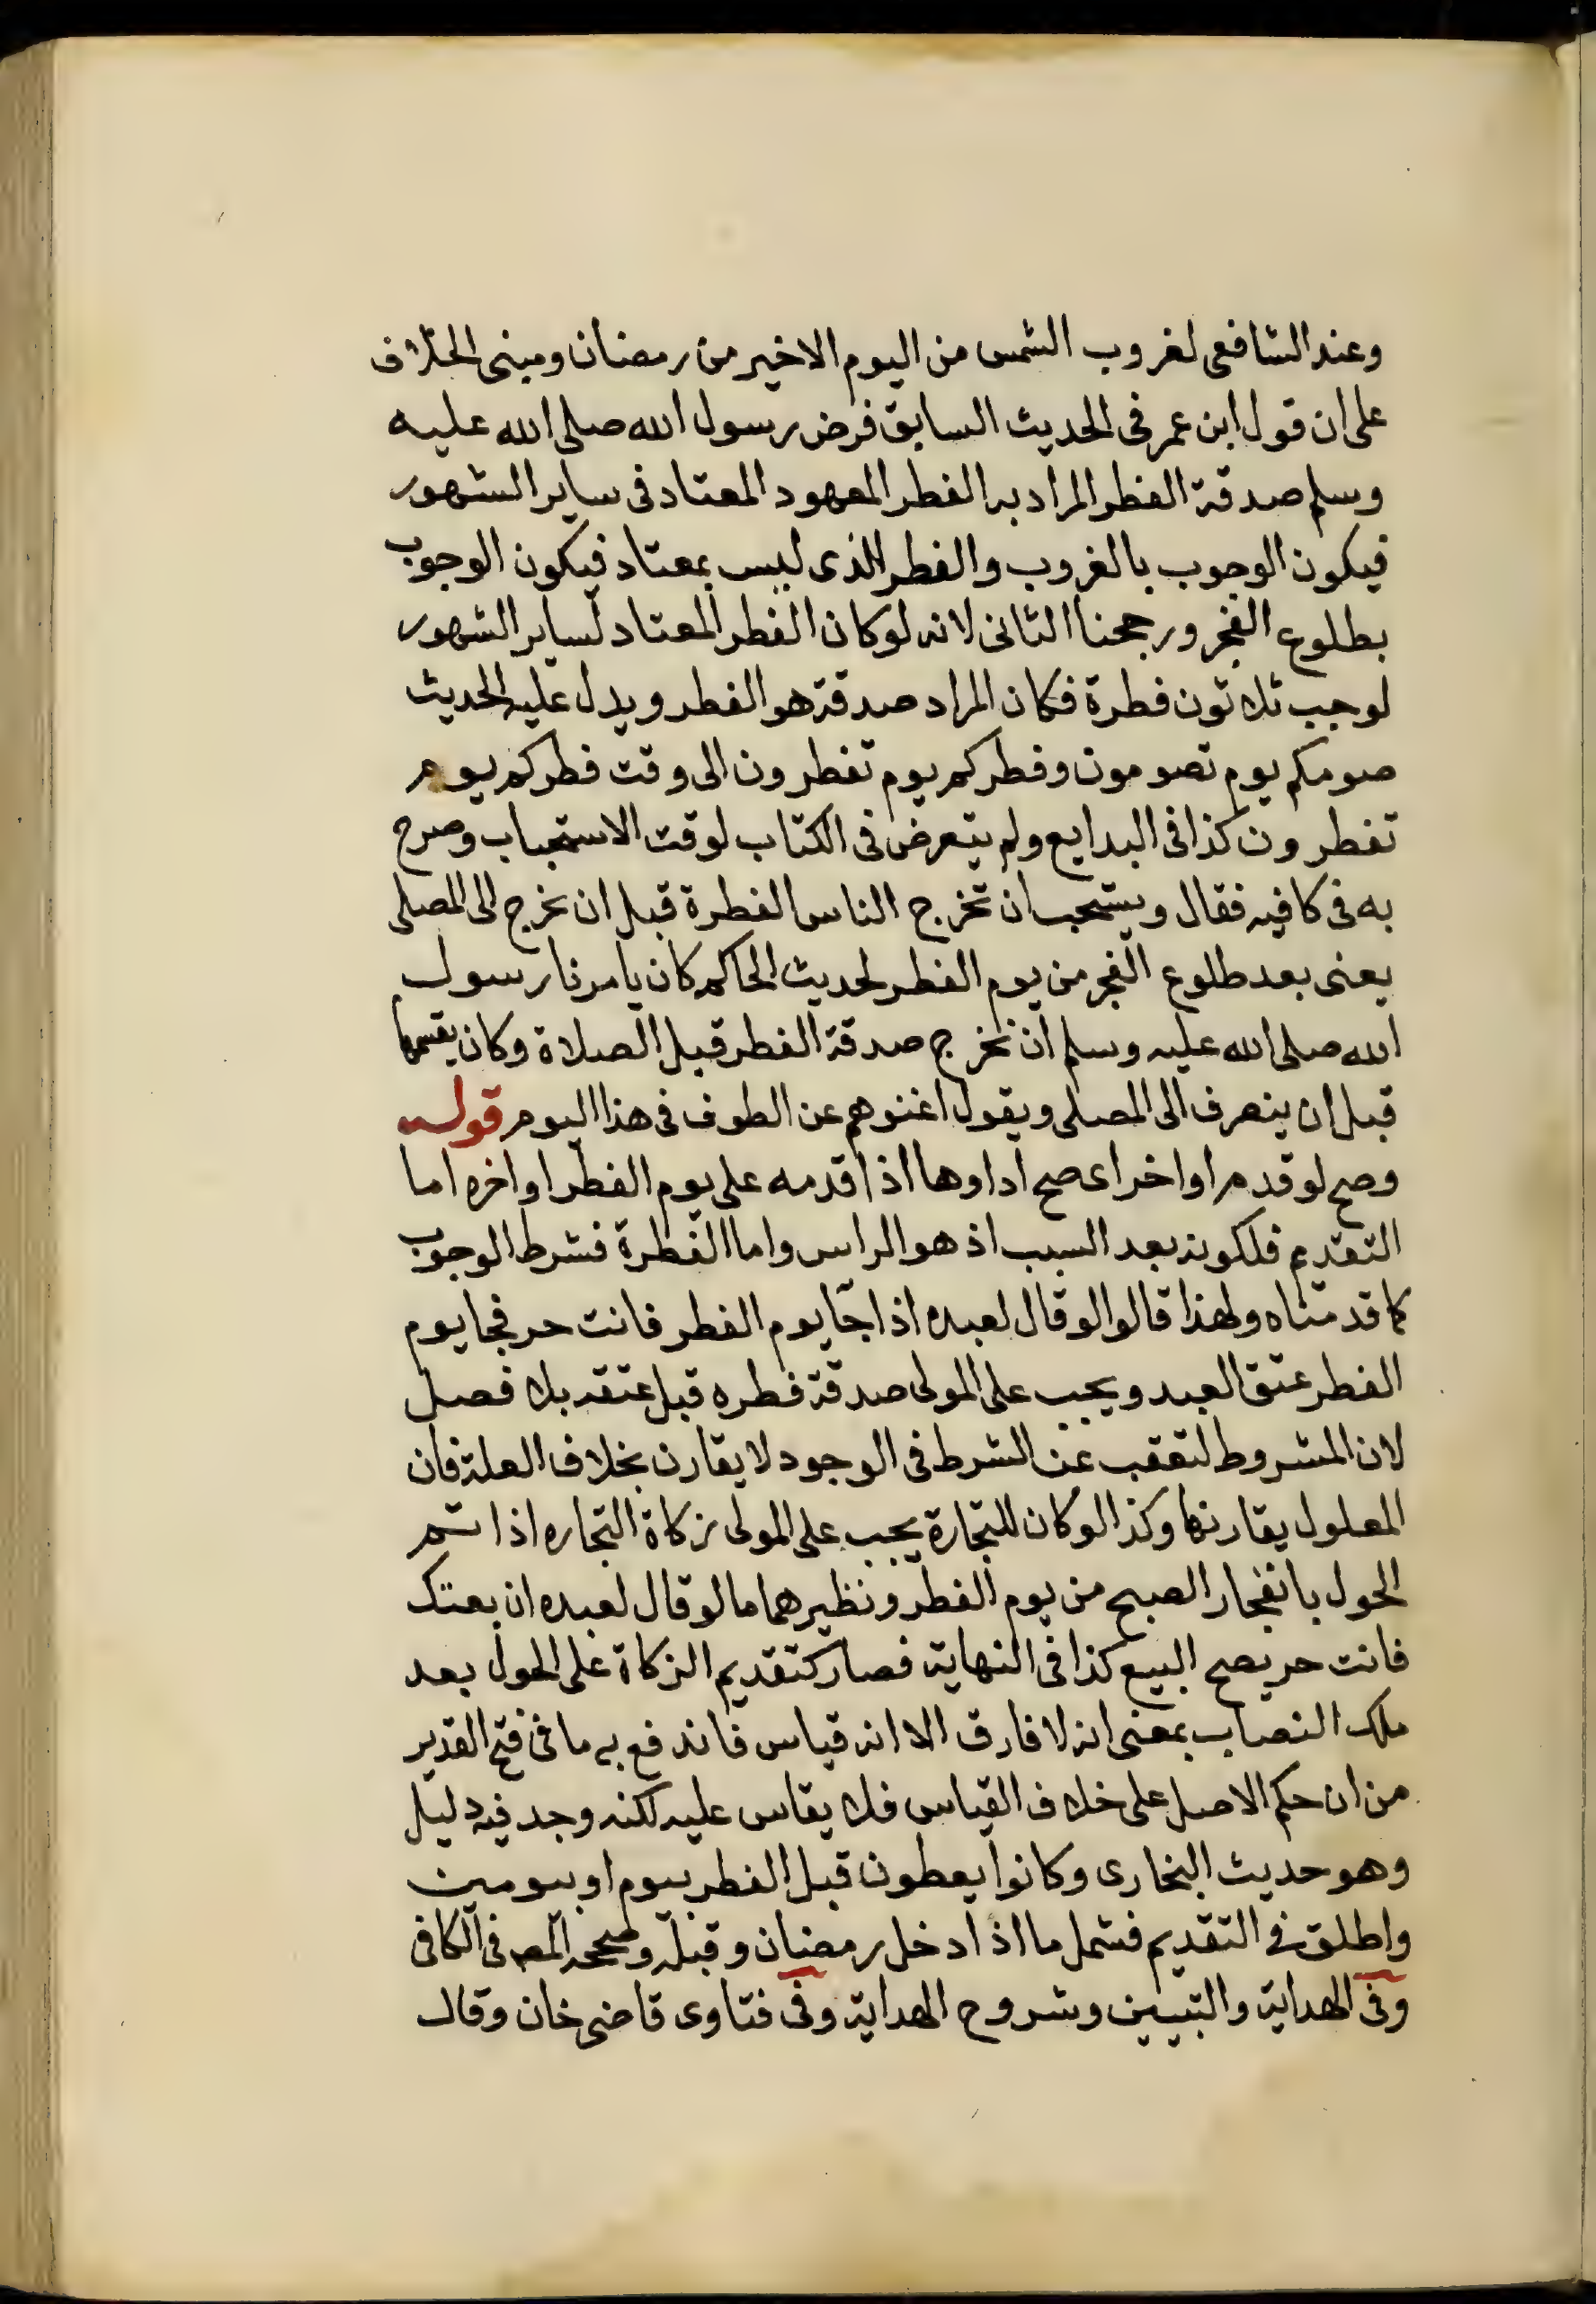 وعند الشافعى لغروب الشمس من اليوم الاخير من رمضان ومبنى الخلاف
على ان قول ابن عمر فى الحديث السابق فرض رسول الله صلى الله عليه
وسلم صدقة الفطر المراد به الفطر المعهود المعتاد فى ساير الشهور
فيكون الوجوب بالغروب والفطر الذى ليس بمعتاد فيكون الوجوب
بطلوع الفجر ورجحنا الثانى لانه لو كان الفطر المعتاد لساير الشهور
لوجب ثلاثون فطرة فكان المراد صدقة هو الفطر ويدل عليه الحديث
صومكم يوم تصومون وفطركم يوم تفطرون الى وقت فطركم يوم
تفطرون كذا فى البدايع ولم يتعرض فى الكتاب لوقت الاستحباب وصرح
به فى كافيه فقال ويستحب ان تخرج الناس الفطرة قبل ان نخرج الى المصلى
يعنى بعد طلوع الفجر من يوم الفطر لحديث الحاكم كان يامرنا رسول
الله صلى الله عليه وسلم ان نخرج صدقة الفطر قبل الصلاة وكان يقسمها
قبل ان ينصرف الى المصلى ويقول اغنوهم عن الطوف فى هذا اليوم قوله
وصح لو قدم او اخر اى صح اداوها اذا قدمه على يوم الفطر او اخره اما
التقديم فلكونه بعد السبب اذ هو الراس واما الفطرة فشرط الوجوب
كما قدمناه ولهذا قالوا لو قال لعبده اذا جا يوم الفطر فانت حر فجا يوم
الفطر عتق العبد ويجب على المولى صدقة فطره قبل عتقه بلا فصل
لان المشروط لتعقب عن الشرط فى الوجود لا يقارن بخلاف العلة فان
المعلول يقارنها وكذا لو كان للتجارة يجب على المولى زكاة التجاره اذا تم
الحول بانفجار الصبح من يوم الفطر ونظيرهما ما لو قال لعبده ان بعتك
فانت حر يصح البيع كذا فى النهاية فصار كتقديم الزكاة على الحول بعد
ملك النصاب بمعنى انه لا فارق الا انه قياس فاندفع به ما فى فتح القدير
من ان حكم الاصل على خلاف القياس فلا يقاس عليه لكنه وجد فيه دليل
وهو حديث البخارى وكانوا يعطون قبل الفطر بيوم او بيومين
واطلق فى التقديم فشمل ما اذا دخل رمضان وقبله وصححه المص فى الكافى
وفى الهداية والتبيين وشروح الهداية وفى فتاوى قاضى خان وقال